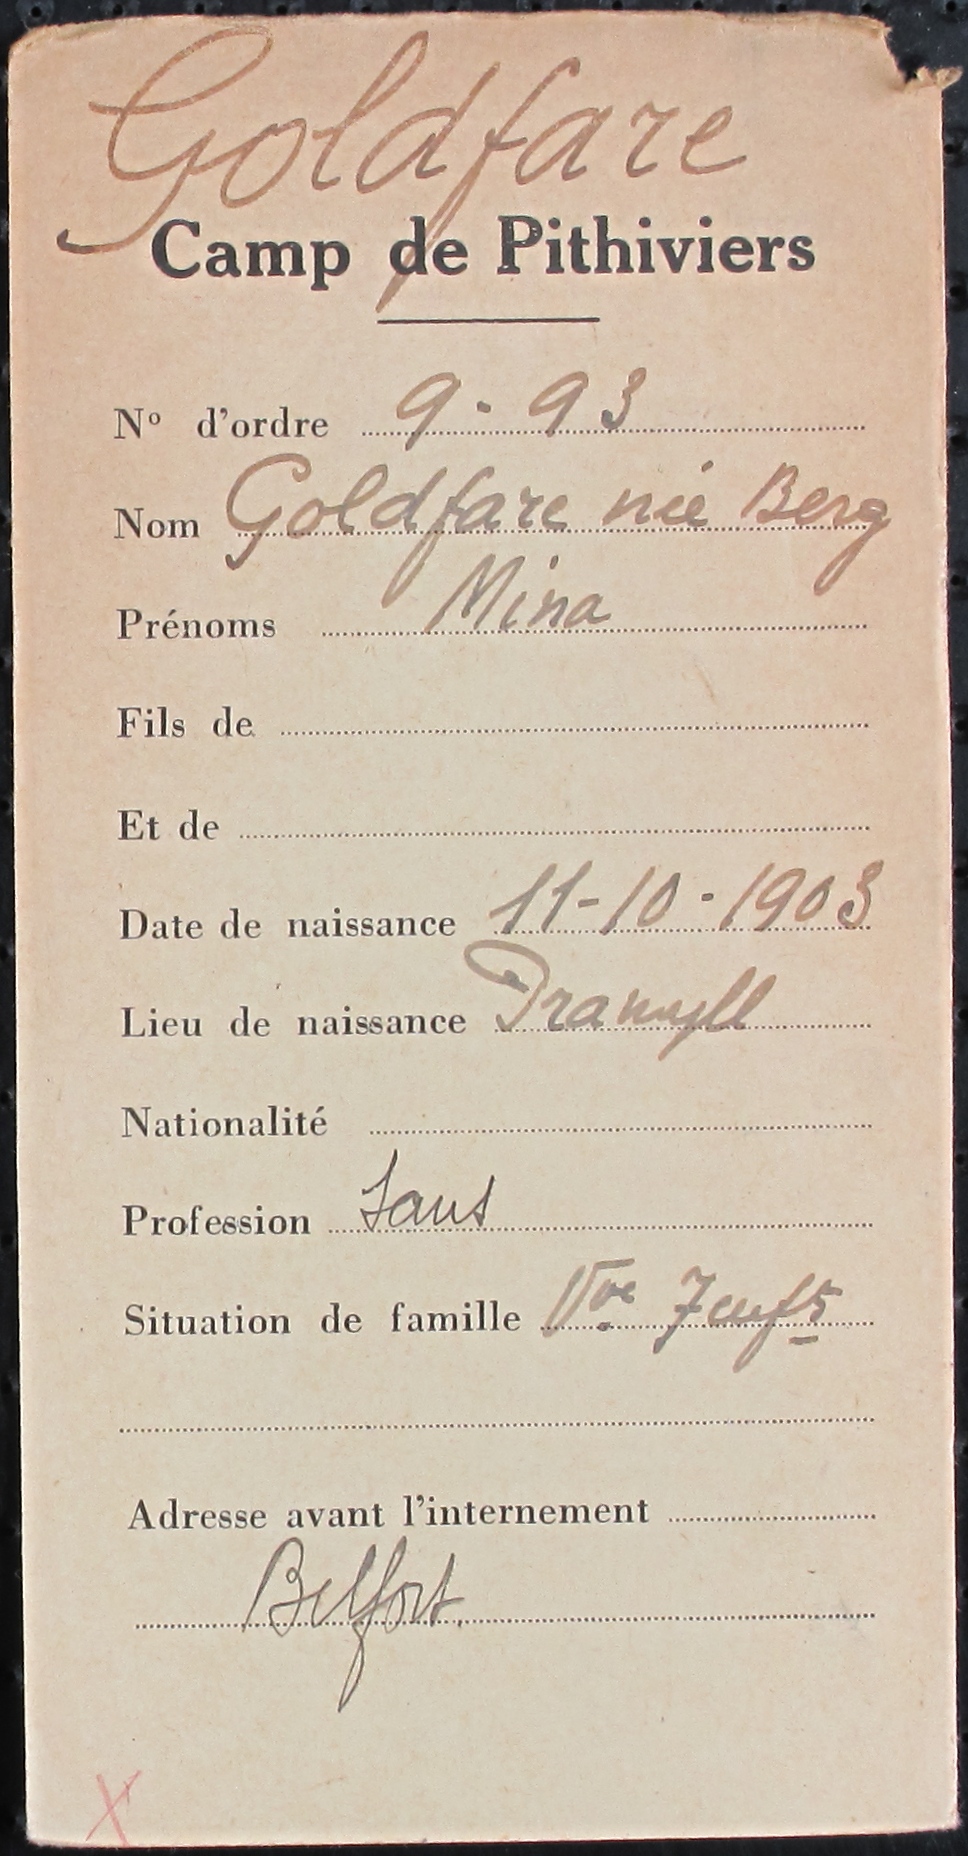 Goldfare
Camp de Pithiviers
Nº d'ordre 9-93
Nom Goldfare née Berg
Prénoms Mina
Fils de
Et de
Date de naissance 11-10-1903
Lieu de naissance
Nationalité
Profession Sans
Situation de famille Vve 7 enfts
Adresse avant l'internement
Belfort
X